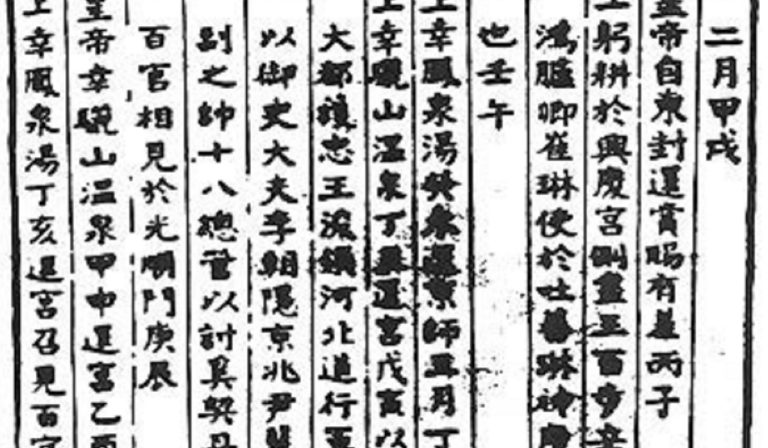 二月甲戌
皇帝自東封還賞賜有差丙子
上躬耕於興慶宮側盡三百步辛
鴻臚卿崔琳使於吐蕃琳神慶
也壬午
上幸鳳泉湯癸未還京師五月丁
上幸驪山溫泉丁還宮戊寅以
大都護忠王浚領河北道行軍
以御史大夫李朝隱京兆尹裴
副之帥十八總管以討奚契丹
百官相見於光順門庚辰
皇帝幸驪山溫泉甲申還宮乙酉
上幸鳳泉湯丁亥還宮召見百官